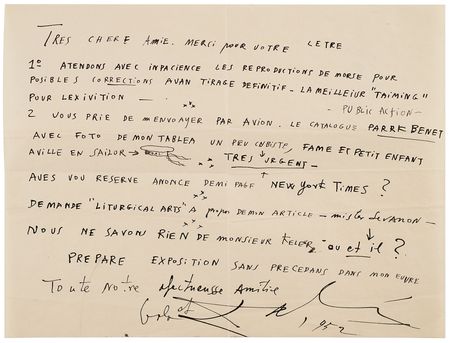 TRES CHERF AMIE. MERCI POUR VOTRE LETRE
1º ATENDONS AVEC INPACIENCE LES REPRODUCTIONS DE MORSE POUR
POSIBLES CORRECTIONS AVAN TIRAGE DEFINITIF - LA MEILLEIUR "TAIMING"
POUR LEXIVITION — . - PUBLIC ACTION -
2 VOUS PRIE DE M'ENVOYER PAR AVION. LE CATALOGUE PARRE BENET
AVEC FOTO DE MON TABLEA UN PEU CUBISTE, FAME ET PETIT ENFANT
AVILLE EN SAILOR →
TRES URGENT -
AVES VOU RESERVE ANONCE DEMI PAGE NEW YORK TIMES ?
DEMANDE "LITURGICAL ARTS" A propos DE MON ARTICLE -
NOUS NE SAVONS RIEN DE MONSIEUR KELER - ou et il ?
PREPARE EXPOSITION SANS PRECEDANS DANS MON EUVRE
Toute Notre afectueusse Amitie
et
1952